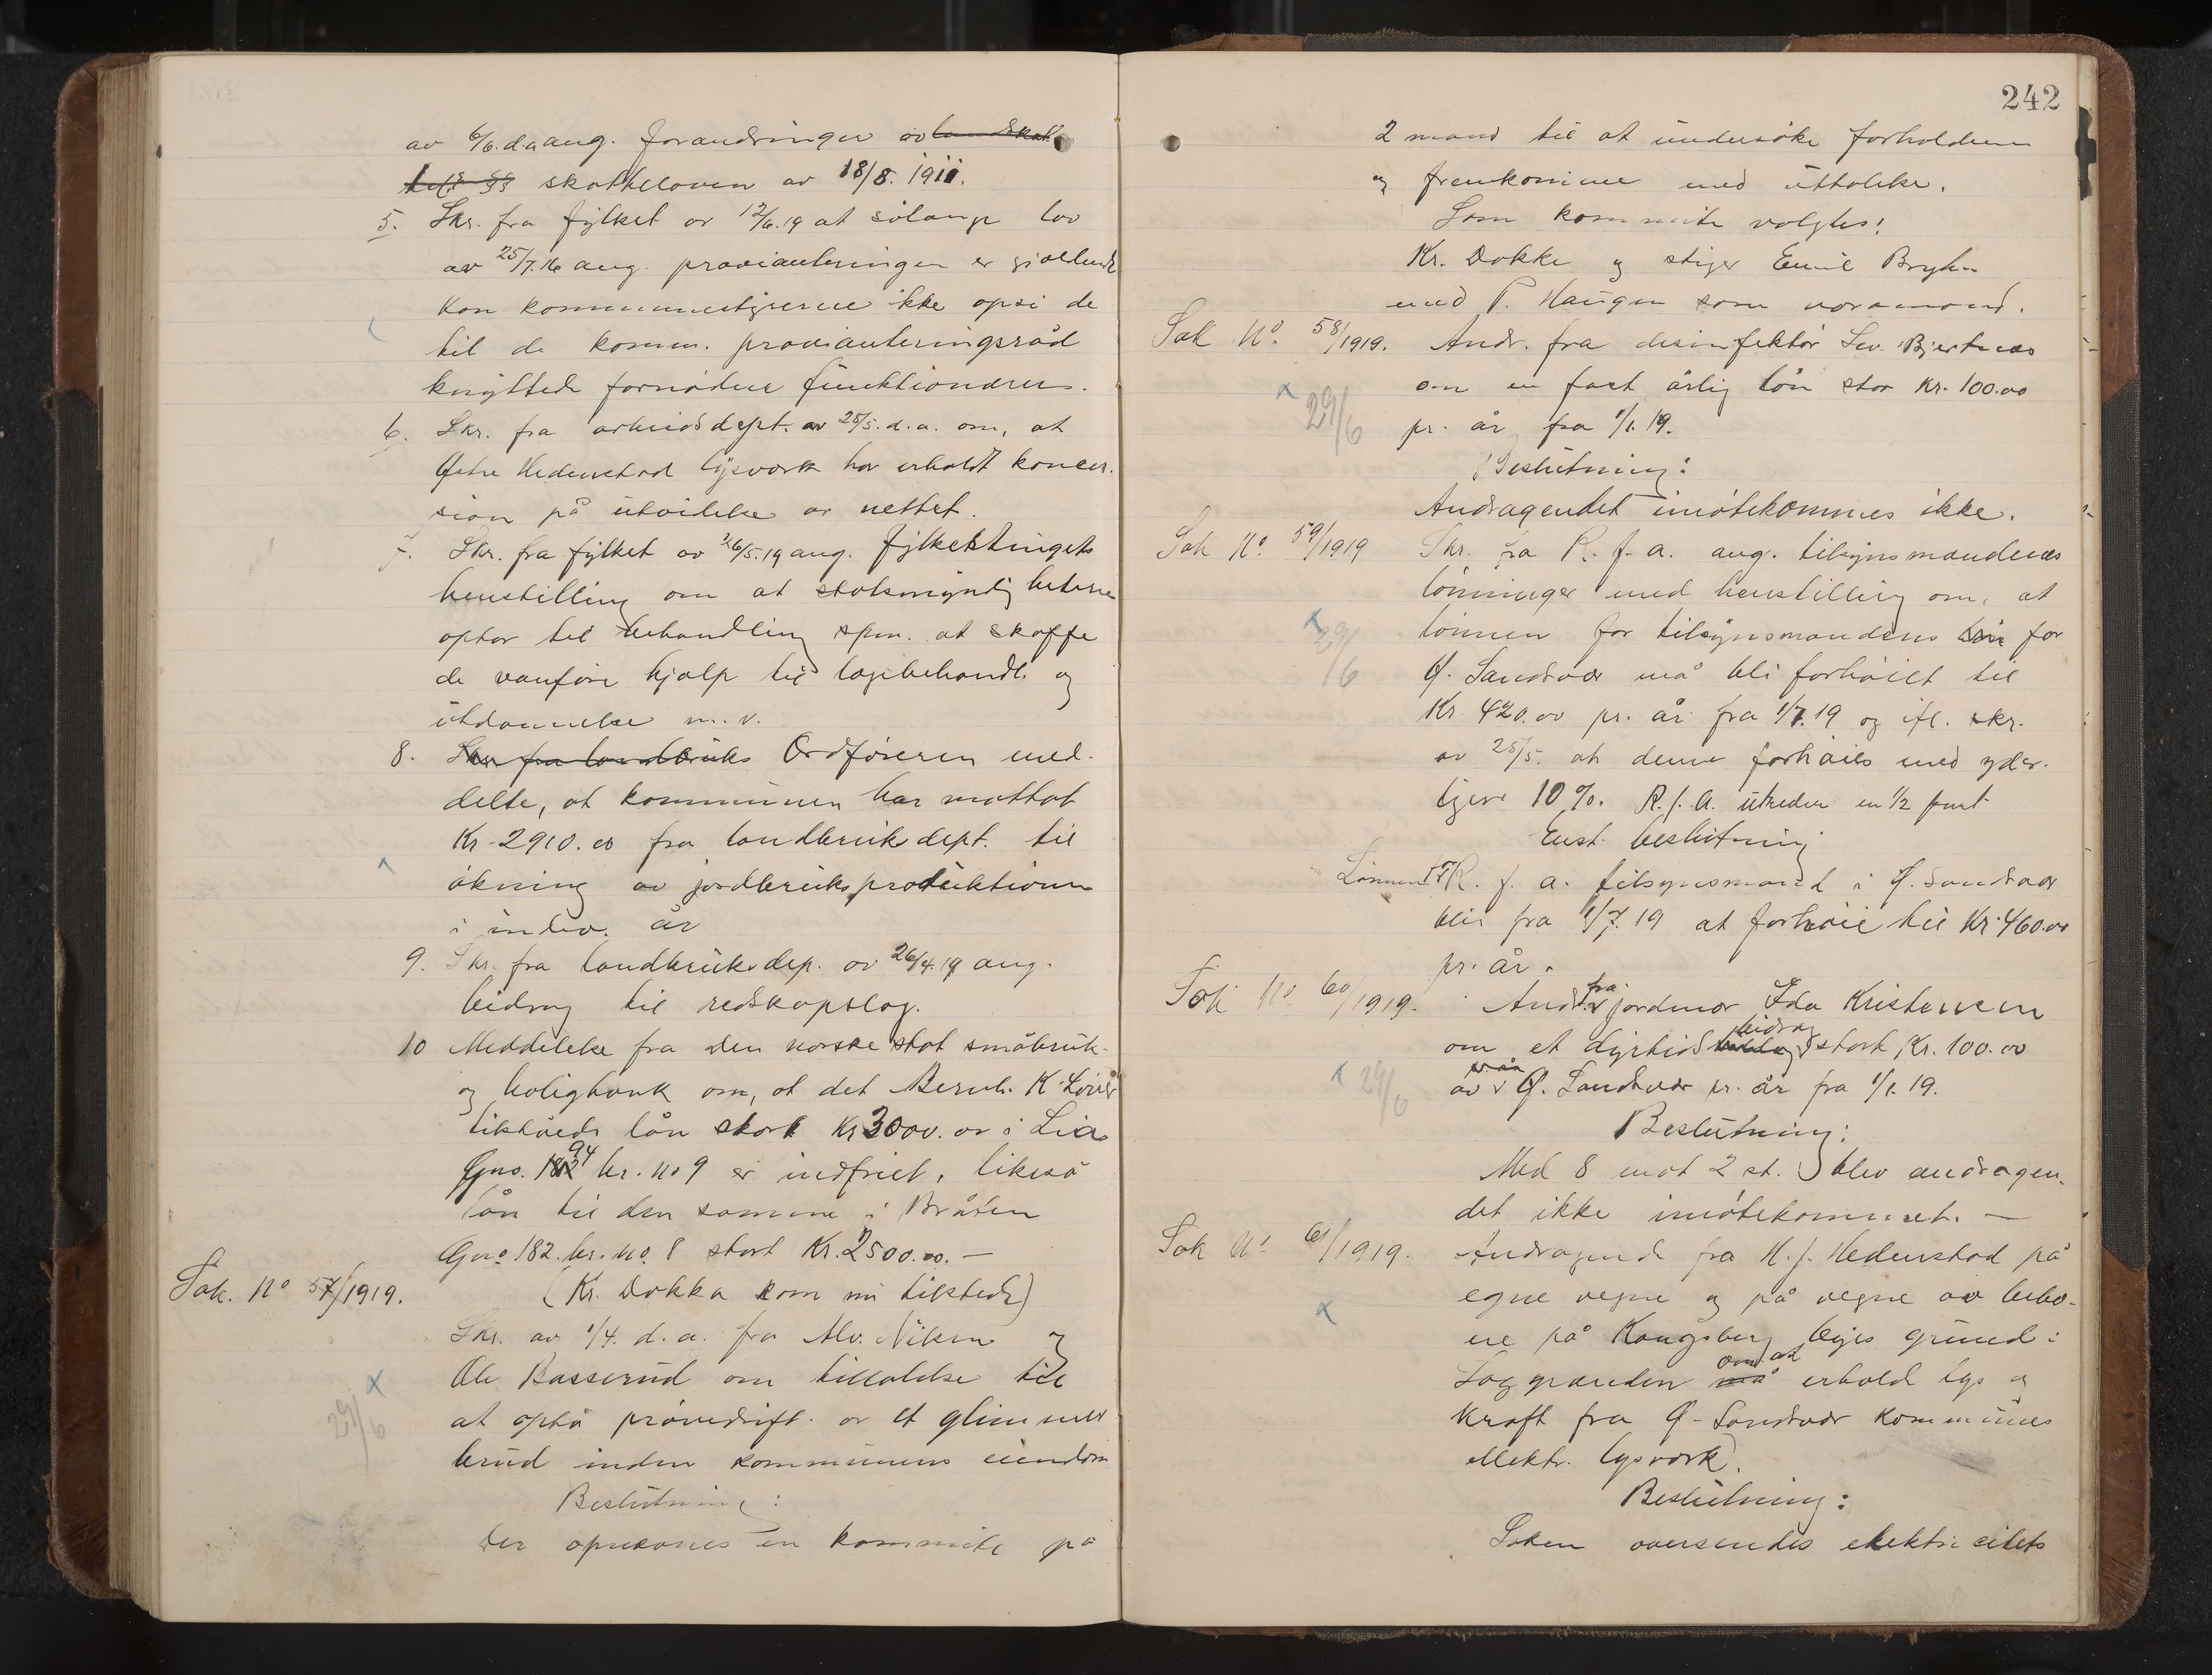 av 6/6. d.a ang. forandringer av landskatt
skatteloven av 18/8. 1911.
5. Skr. fra fylket av 12/6.19 at sålænge lov
av 25/7.16 ang. provianteringen er gjældende
kan kommunestyrerne ikke opsi de
til de komm. provianteringsråd
knyttede fornødne funktionærer.
6. Skr. fra arbeidsdept. av 28/5. d.a. om, at
Øvre Hedenstad lysverk har erholdt konces-
sion på utvidelse av nettet.
7. Skr. fra fylket av 26/5.19 ang. fylkestingets
henstilling om at statsmyndigheterne
optar til behandling spm. at skaffe
de vanføre hjælp til lægebehandl. og
utdannelse m.v.
8. Skr. fra landbruks Ordføreren med-
delte, at kommunen har mottat
Kr. 2910.00 fra landbruksdept. til
økning av jordbruksproduktionen
i indev. år
9. Skr. fra landbruksdep. av 26/4.19 ang.
bidrag til redskapslag.
10 Meddelelse fra den norske stat småbruk-
og boligbank om, at det Bernh. K.
tilståede lån stort Kr 3000.00 i Lia
Gno. 94 br. no 9 er indfriet, likeså
lån til den samme i Bråten
Gno. 182. br. no. 8 stort Kr. 2500.00. —
Sak. No 57/1919. (Kr. Dokka kom nu tilstede)
Skr. av 1/4. d.a. fra Alv. Nilsen og
Ole Basserud om tilladelse til
at opta prøvedrift av et glimmer
brud inden kommunens eiendom
29/6
Beslutning:
Der opnævnes en kommite på
242
2 mand til at undersøke forholdene
og fremkomme med uttalelse.
Som kommite valgtes:
Kr. Dokke og stiger Emil Bryhn
med T. Haugen som varamand.
Sak No. 58/1919. Andr. fra desinfektør Lev. Bjertnæs
om en fast årlig løn stor Kr. 100.00
29/6 pr. år fra 1/1.19.
Beslutning:
Andragendet imøtekommes ikke.
Sak No. 59/1919 Skr. fra R.f.a. ang. tilsynsmandenes
lønninger med henstilling om, at
29/6 lønnen for tilsynsmandens for
Ø. Sandsvær må bli forhøiet til
Kr 420.00 pr. år fra 1/7.19 og ifl. skr.
av 28/5. at denne forhøies med yder-
ligere 10%. R.f.A. utreder en 1/2 part
Enst. beslutning
Lønnen til R.f.a. tilsynsmand i Ø. Sandsvær
blir fra 1/7.19 at forhøie til Kr. 460.00
pr. år.
Sak No. 60/1919. Andr. fra jordmor Ida Kristensen
om et dyrtids bidrag stort Kr. 100.00
29/6 av Ø. Sandsvær pr. år fra 1/1.19.
Beslutning:
Med 8 mot 2 st. blev andragen-
det ikke imøtekommet. —
Sak No 61/1919. Andragende fra H.J. Hedenstad på
egne vegne og på vegne av bebo-
ere på Kongsberg byes grund:
Saggrenden om at må erholde lys og
kraft fra Ø-Sandsvær kommunes
elektr. lysverk.
Beslutning:
Saken oversendes elektricitets